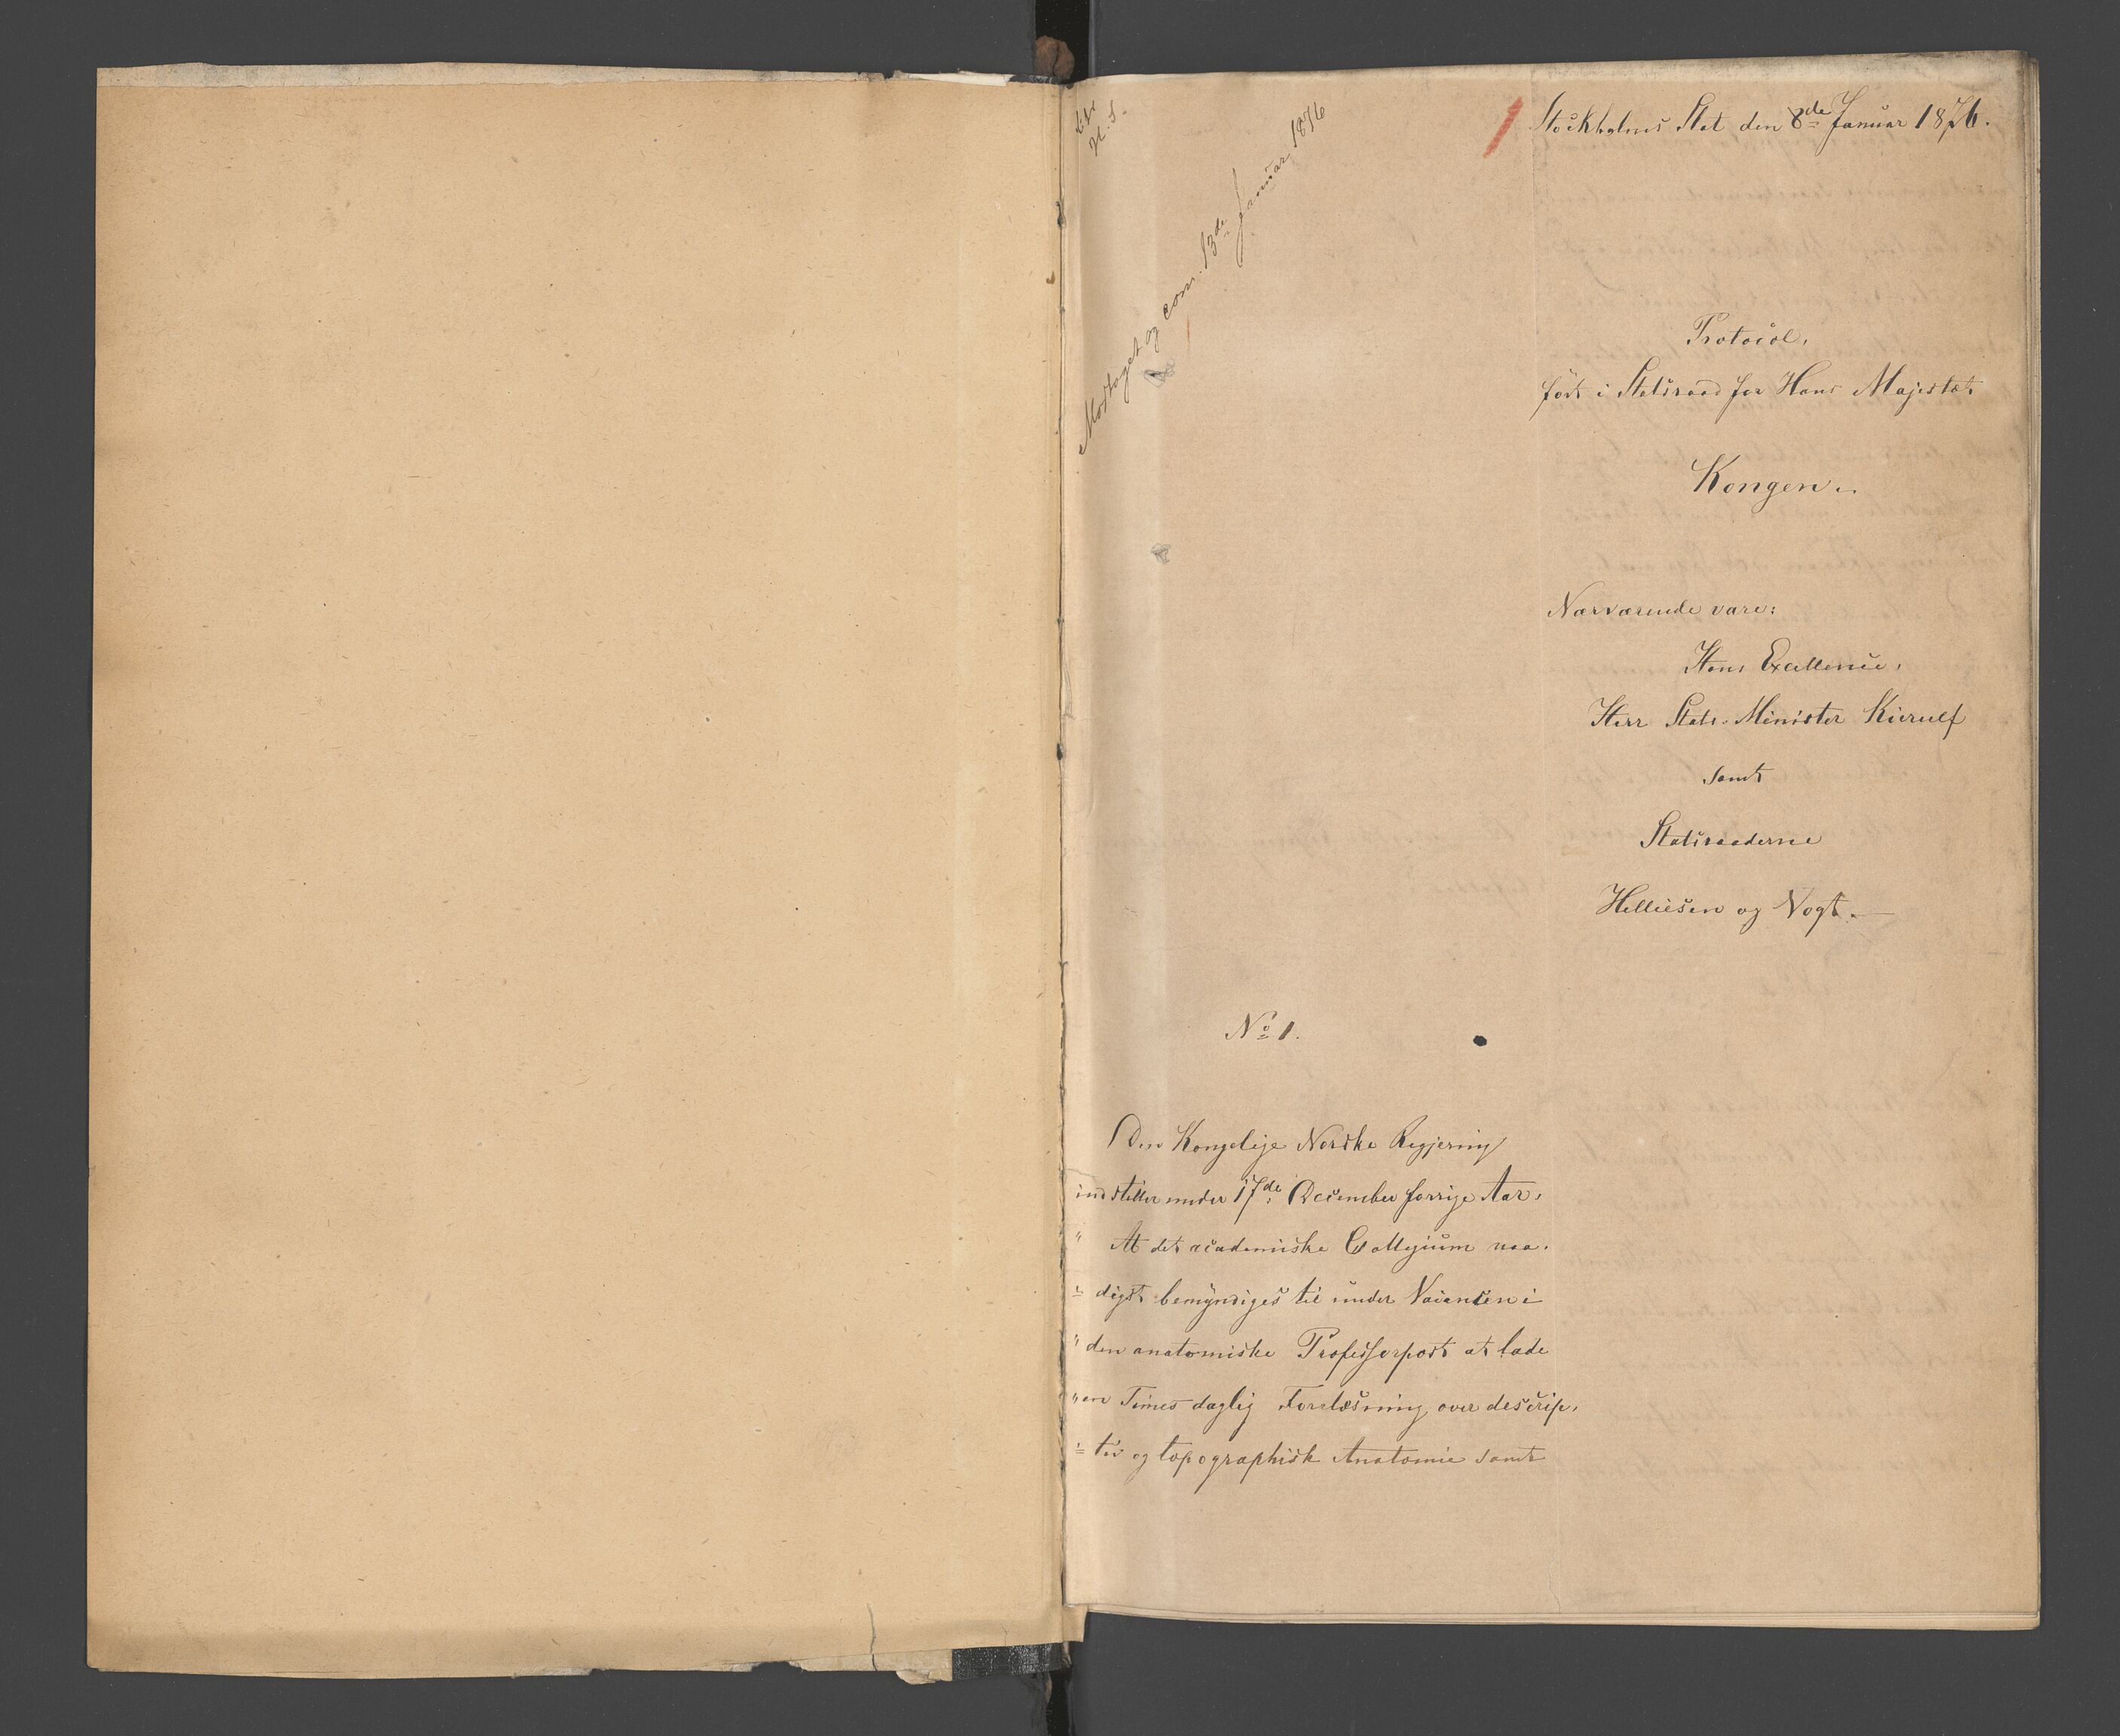 Stockholms Slot den 8de Januar 1876.
Mottaget og com. 13de Januar 1876
Protocol,
ført i Statsraad for Hans Majestæt
Kongen.
Nærværende vare:
Hans Excellence,
Herr Stats-Minister Kierulf
samt
Statsraaderne
Helliesen og Vogt.
No 1.
Den Kongelige Norske Regjering
indstiller under 17de December forrige Aar,
" At det academiske Collegium naa-
" digst bemyndiges til under Vacancen i
" den anatomiske Professorpost at lade
" en Times daglig Forelæsning over descrip-
" tiv og topographisk Anatomie samt